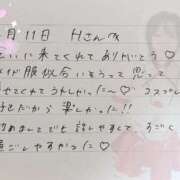 月11日 Hさん
いに来てくれてありがとう♡
服似合いそうって思って
せてくれてうれしかった〜♡ コスプレ
せだから楽しかった!!
めましてでも話しやすくて、すごく
過ごしやすかった♡